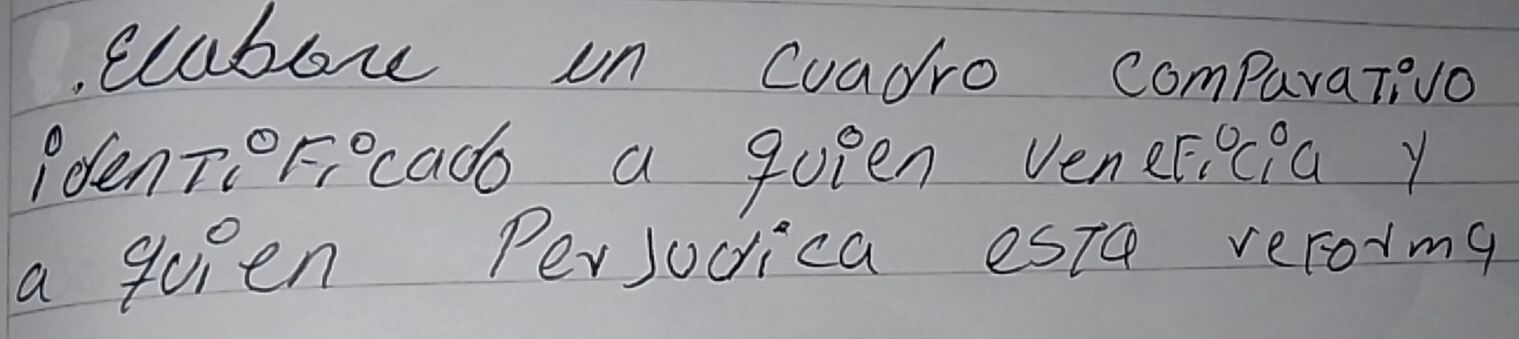 .Elabore un cuadro comparativo
identificado a quien veneficia y
a quien Perjudica esta reforma